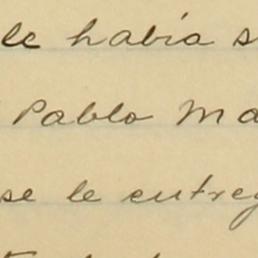 le había s
Pablo Ma
se le entreg